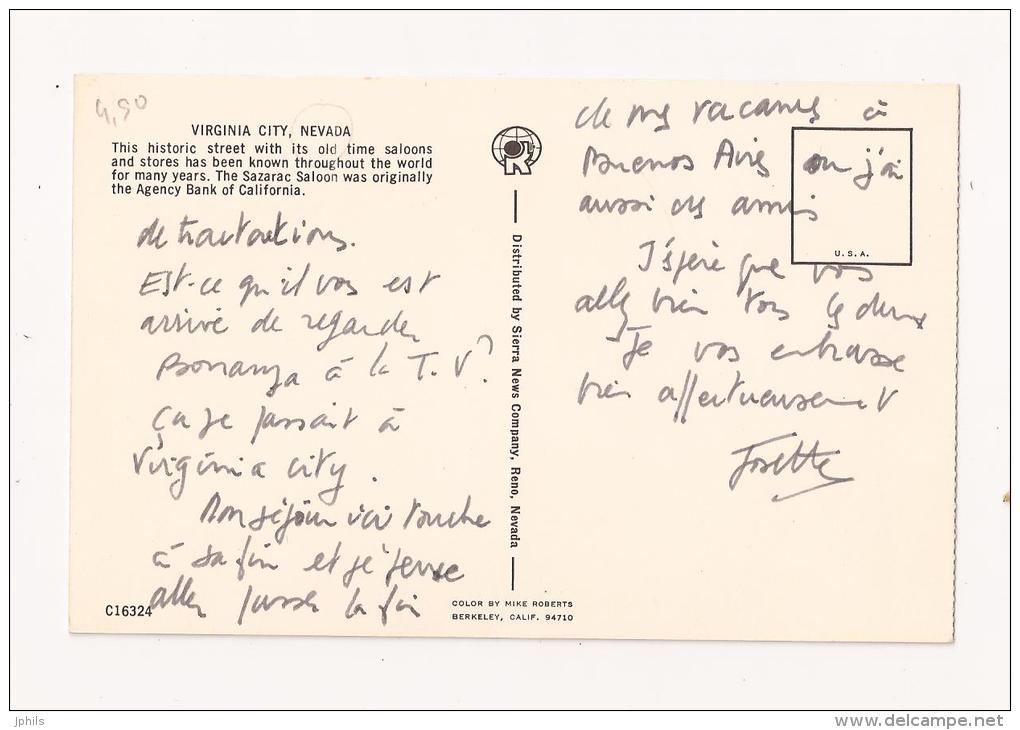 4,90
VIRGINIA CITY, NEVADA
This historic street with its old time saloons
and stores has been known throughout the world
for many years. The Sazarac Saloon was originally
the Agency Bank of California.
de
Est-ce qu'il vos est
arrivé de regarder
Bonanza à la T.V?
ça se passait à
Virginia city.
Mon séjour ici touche
à sa fin et je pense
aller passer la fin
C16324
Distributed by Sierra News Company, Reno, Nevada
COLOR BY MIKE ROBERTS
BERKELEY, CALIF. 94710
de mes vacances à
Buenos Aires ou j'ai
aussi des amis
U.S.A.
J'espère que vos
allez bien tos les deux
Je vos embrasse
bien affectueusement
Josette
jphils
www.delcampe.net